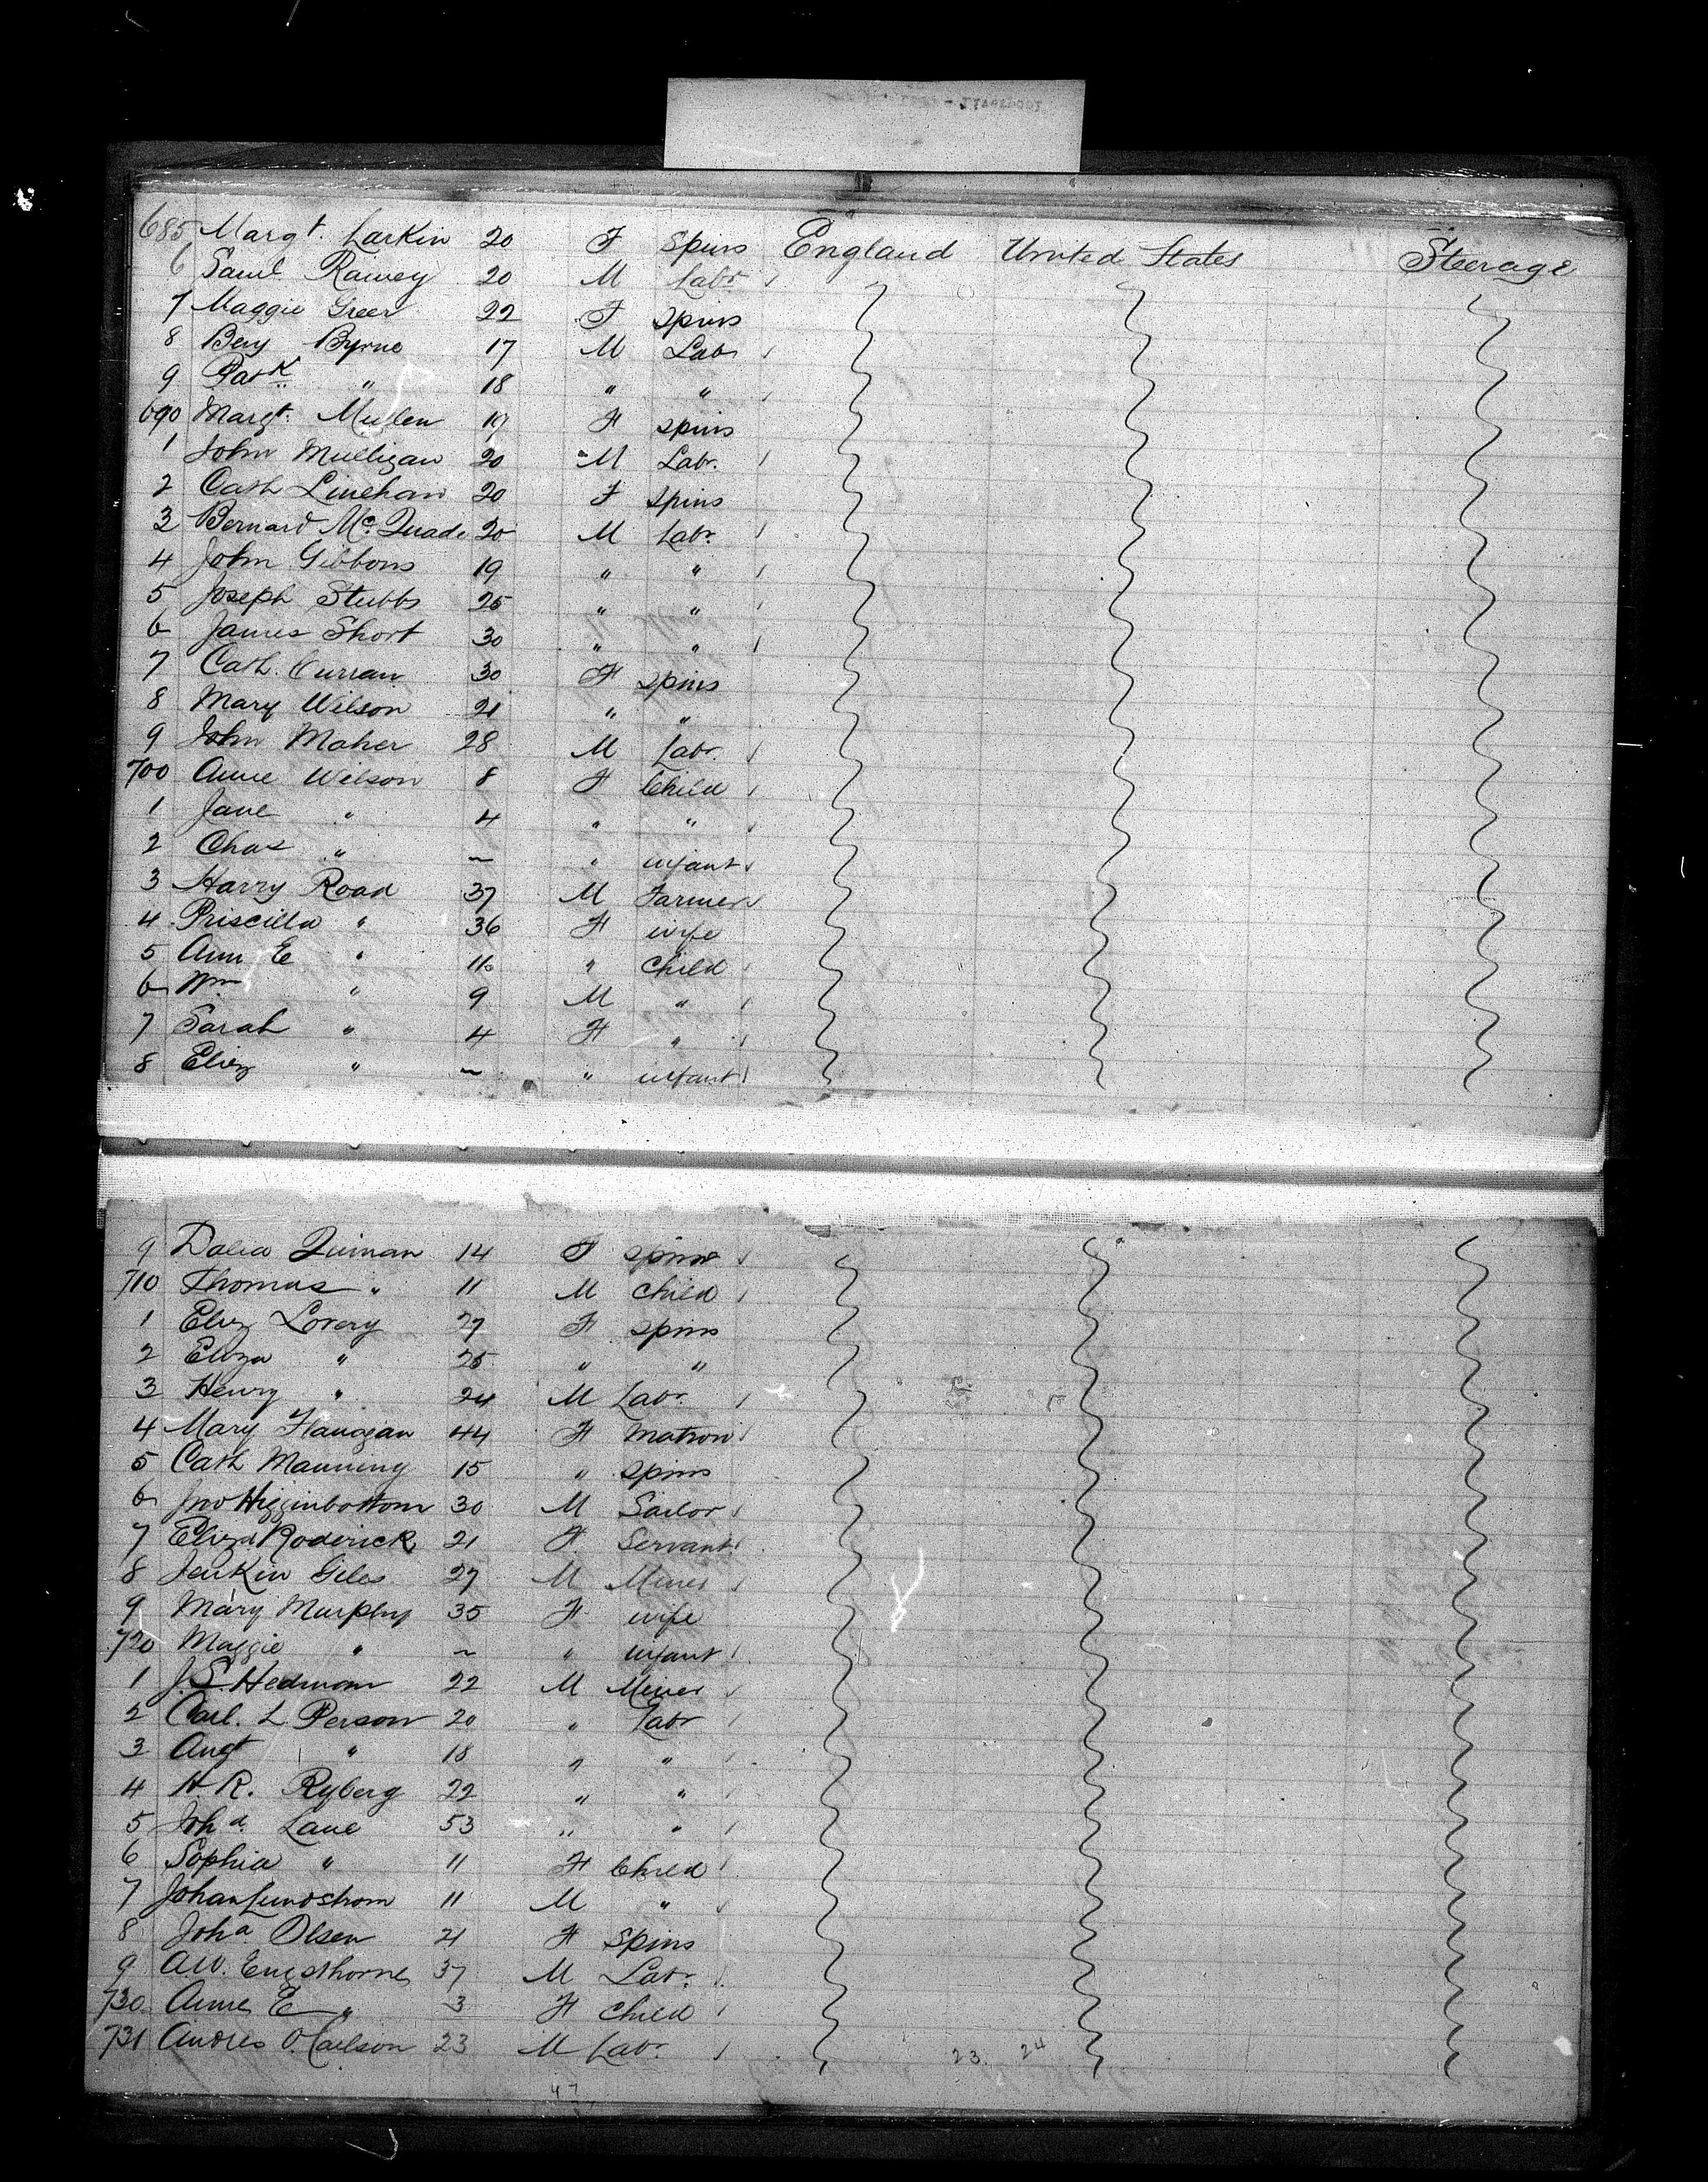 Liverpool
685 Margt. Larkin 20 F Spins England United States Steerage
6 Saml Ramey 20 M Labr
7 Maggie Greer 22 F Spins
8 Benj Byrne 17 M Labr
9 Patk " 18 " "
690 Margt. Mullen 19 F Spins
1 John Mulligan 20 M Labr.
2 Cath Linehan 20 F Spins
3 Bernard McQuade 20 M Labr.
4 John Gibbons 19 " "
5 Joseph Stubbs 25 " "
6 James Short 30 " "
7 Cath. Curran 30 F Spins
8 Mary Wilson 21 " "
9 John Maher 28 M Labr.
700 Anne Wilson 8 F Child
1 Jane " 4 " "
2 Chas " ~ " infant
3 Harry Road 37 M Farmer
4 Priscilla " 36 F wife
5 Ann E " 11 " Child
6 Wm " 9 M "
7 Sarah " 4 F "
8 Eliz " ~ " infant
9 Delia Quinan 14 F Spins
710 Thomas " 11 M Child
1 Eliz Lovery 27 F Spins
2 Eliza " 25 " "
3 Henry " 24 M Labr.
4 Mary Flanagan 44 F Matron
5 Cath Manning 15 " Spins
6 Jno Higginbottom 30 M Sailor
7 Eliza Roderick 21 F Servant
8 Jenkin Giles 27 M Miner
9 Mary Murphy 35 F wife
720 Maggie " ~ " infant
1 J.S. Hedmom 22 M Miner
2 Carl. L Person 20 " Labr
3 Augt " 18 " "
4 H. R. Ryberg 22 " "
5 Joh Lane 53 " "
6 Sophia " 11 F Child
7 Johan Lundstrom 11 M "
8 Joha Olsen 21 F Spins
9 A.W. Engsthorne 37 M Labr.
730 Anne E " 3 F Child
731 Andres O. Carlson 23 M Labr.
23. 24
47